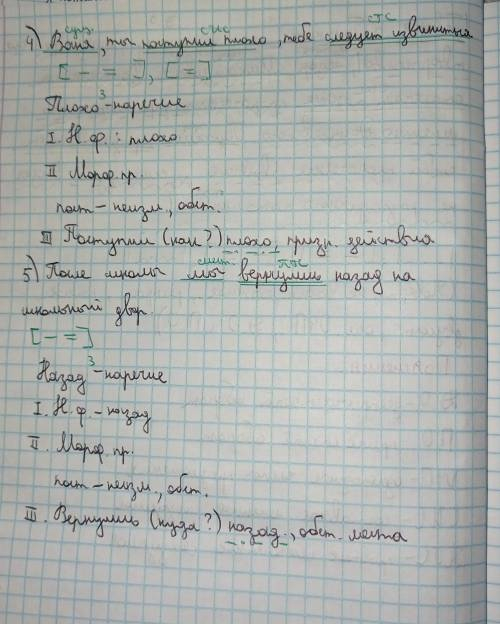 сущ. СИС СГС
4) Ваня, ты поступил плохо, тебе следует извиниться
[ - = ], [ = ]
Плохо³ - наречие
I. Н. ф. : плохо
II Морф. пр.
пост - неизм., обст.
III Поступил (как?) плохо, призн. действия
мест. ПГС
5) После школы мы вернулись назад на
школьный двор.
[ - = ]
Назад³ - наречие
I. Н. ф. - назад
II. Морф. пр.
пост - неизм., обст.
III. Вернулись (куда?) назад, обст. места